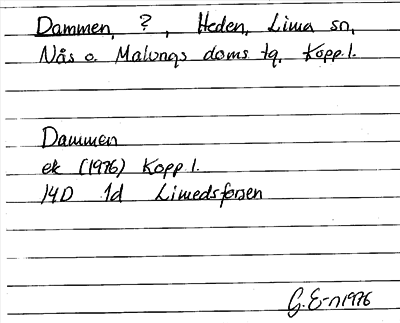 Dammen, ?, Heden, Lima sn,
Nås o. Malungs doms tg, Kopp. l.
Dammen
ek (1976) Kopp. l.
14D 1d Limedsforsen
G. E-n 1976